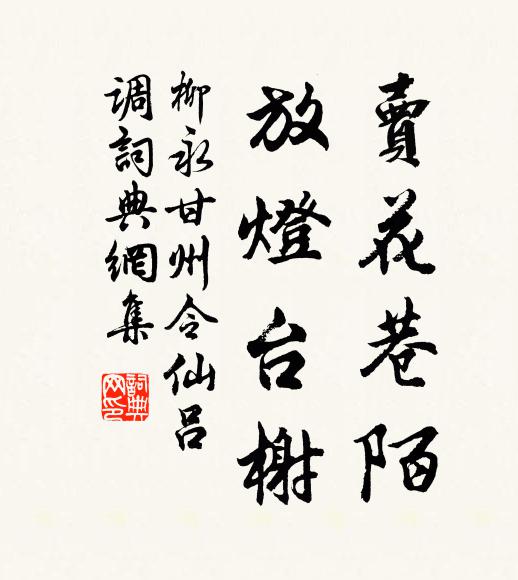 賣花巷陌
放燈台榭
柳永甘州令仙呂
调詞典網集
詞典网印